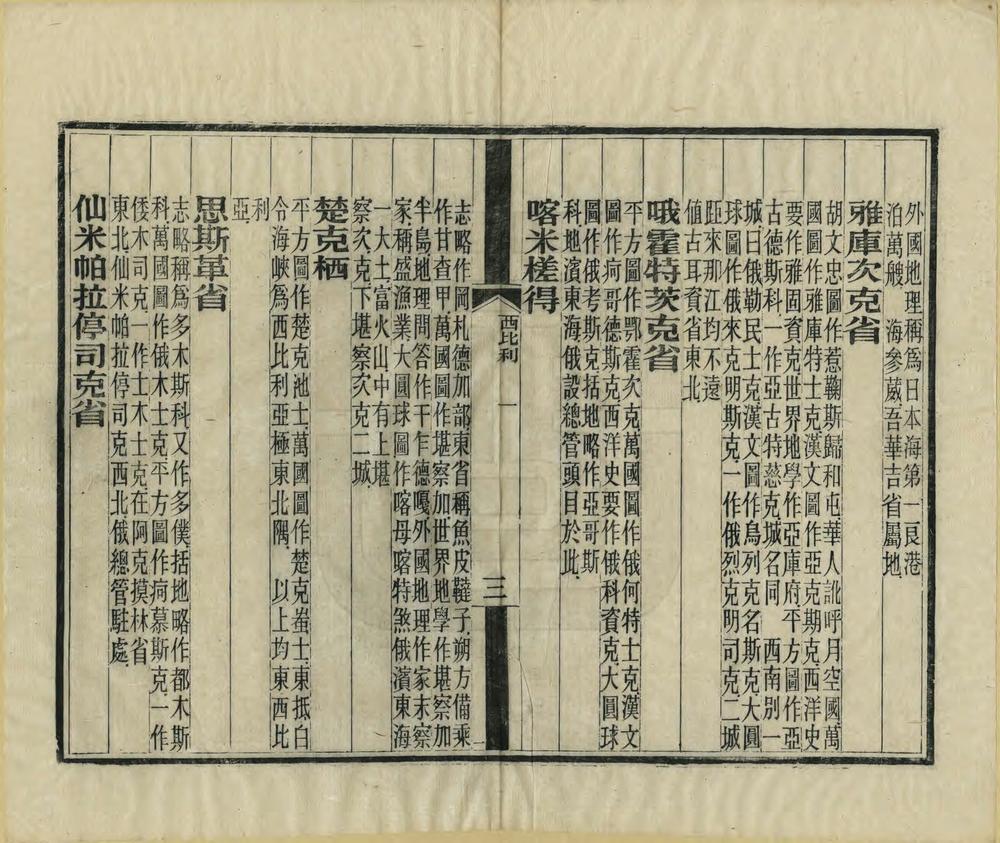 外國地理稱爲日本海第一良港
泊萬艘　海參葳吾華吉省屬地
雅庫次克省
胡文忠圖作惹鞠斯歸和屯華人訛呼月空國萬
國圖作雅庫特士克漢文圖作亞克期克西洋史
要作雅固資克世界地學作亞庫府平方圖作亞
古德斯科一作亞古特慈克城名同　西南別一
城曰俄勒民士克漢文圖作鳥列克名斯克大圓
球圖作俄來克明斯克一作俄烈克明司克二城
距來那江均不遠
値古耳資省東北
哦霍特茨克省
平方圖作鄂霍次克萬國圖作俄何特士克漢文
圖作疴哥德斯克西洋史要作俄科資克大圓球
圖作俄考斯克括地略作亞哥斯
科地濱東海俄設總管頭目於此
喀米槎得
西比利　一　三
志略作岡札德加部東省稱魚皮韃子朔方備乘
作甘查甲萬國圖作堪察加世界地學作堪察加
半島地理問答作干乍德嘎外國地理作家末察
家稱盛漁業大圓球圖作喀母喀特煞俄濱東海
一大土富火山中有上堪
察次克下堪察次克二城
楚克栖
平方圖作楚克池士萬國圖作楚克蚩士東抵白
令海峽爲西比利亞極東北隅　以上均東西比
利
亞
思斯革省
志略稱爲多木斯科又作多僕括地略作都木斯
科萬國圖作俄木士克平方圖作疴慕斯克一作
倭木司克一作土木士克在阿克摸林省
東北仙米帕拉停司克西北俄總管駐處
仙米帕拉停司克省